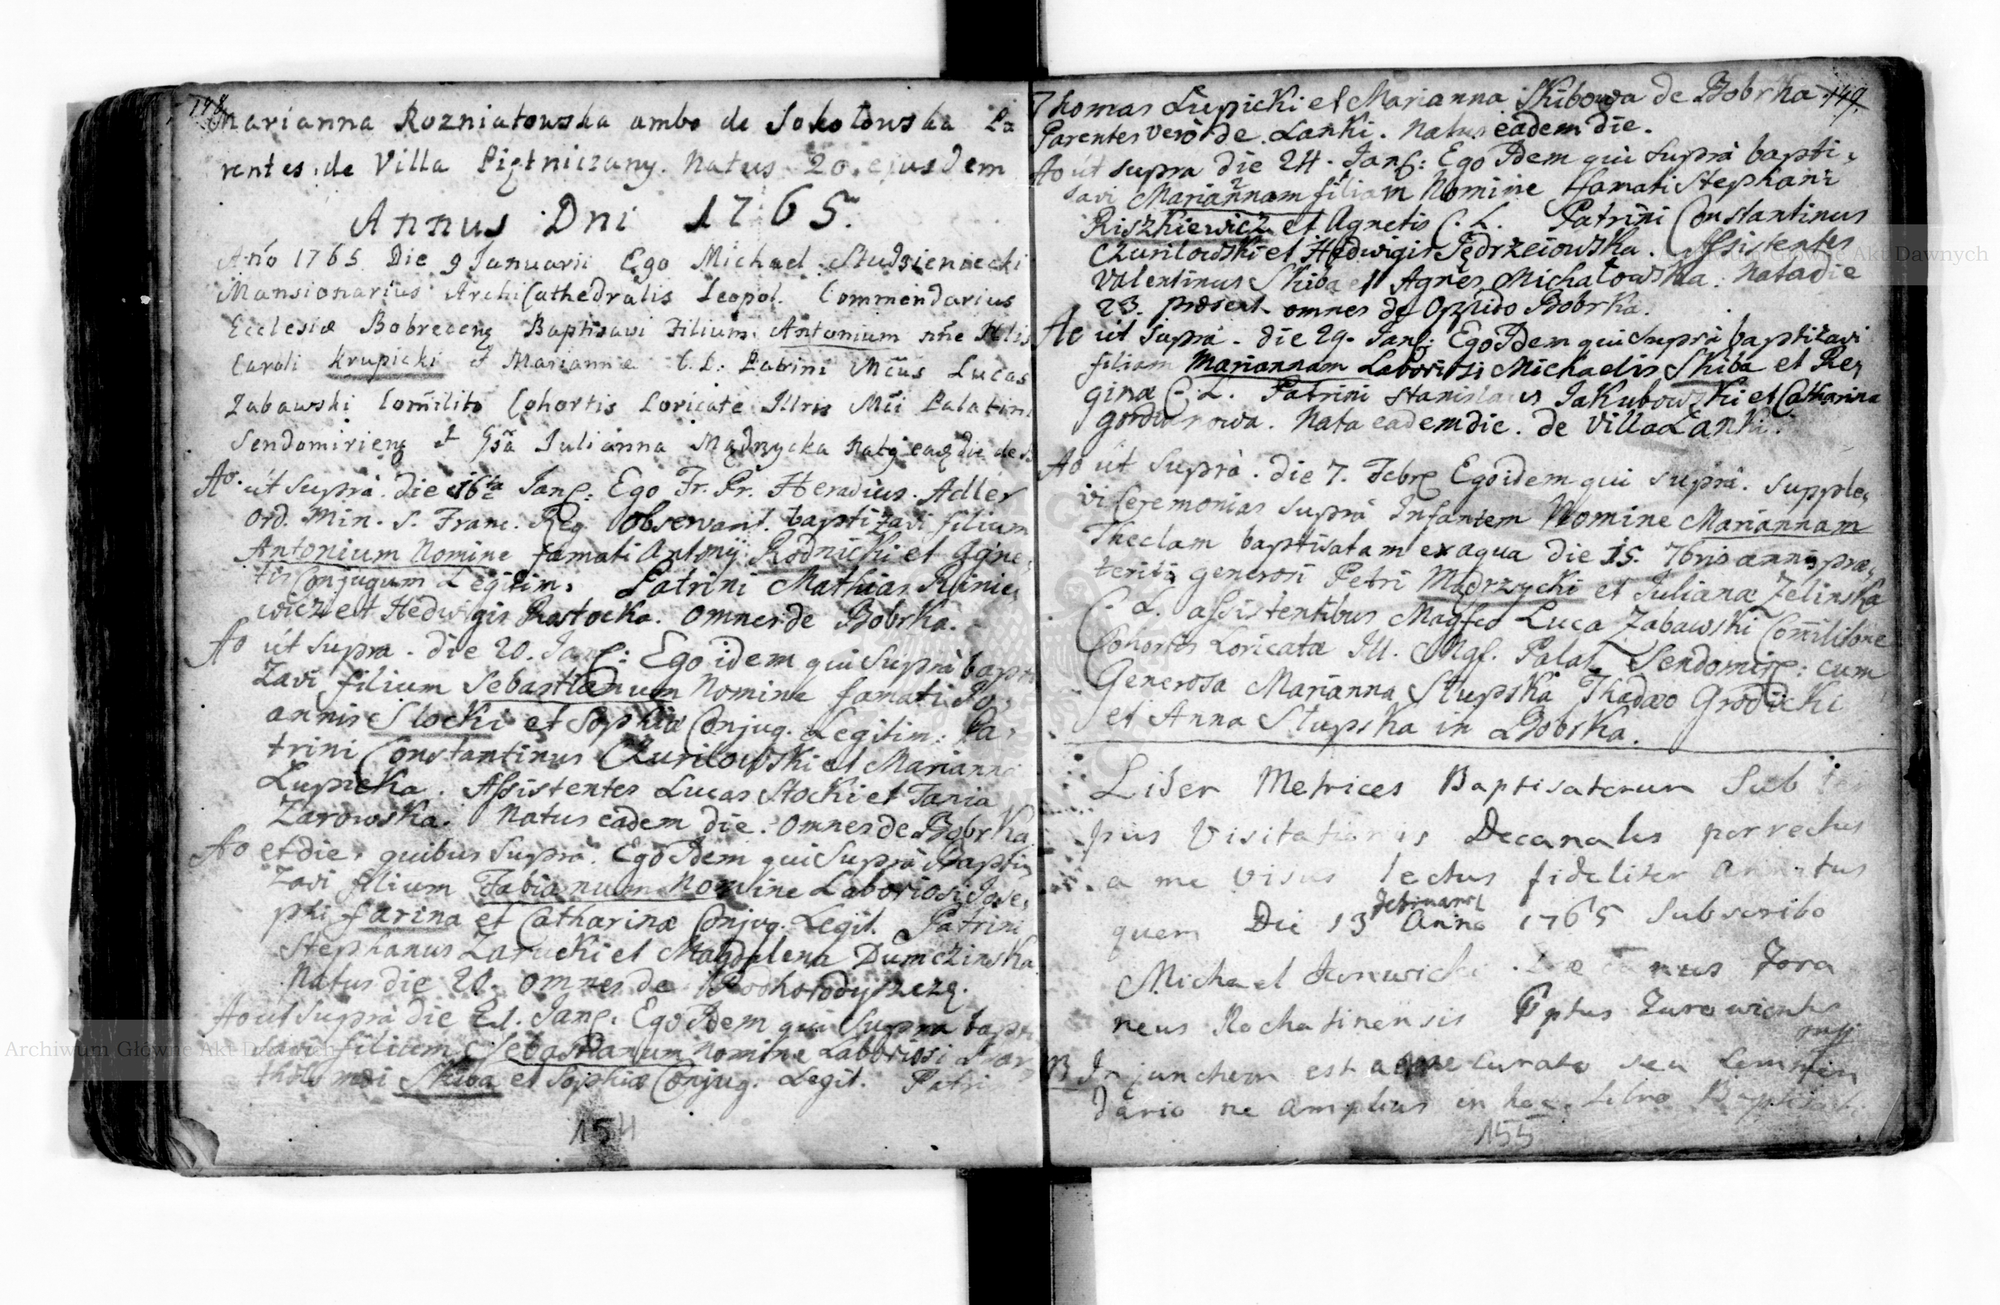 148
Marianna Rozniatowska ambo de Sokolowska Pa
rentes de Villa Piętniczany. Natus 20 ejusdem
Annus Dni 1765.
Año 1765 Die 9 Januarii Ego Michael Studzieniecki
Mansionarius ArchiCathedralis Leopol. Commendarius
Ecclesiæ Bobrecens Baptisavi Filium Antonium
Caroli Krupicki et Mariannæ C. L. Patrini Lucas
Zabawski Comilito Cohortis Loricatæ Illris Palatini
Sendomiriens et Julianna Mądrzycka
Ao ut supra. die 16ta Jan: Ego Fr. Pr. Heradius Adler
Ord. Min. S. Franc. Reg. Observant. baptizavi filium
Antonium Nomine famati Antonij Rodnicki et Agne,
tis Conjugum Legitim, Patrini Mathias
wicz et Hedwigis Rastocka. Omnes de Bobrka.
Ao ut supra. die 20. Jan: Ego idem qui supra bapti
Zavi filium Sebastianum Nomine famati Jo,
annis Slocki et Sophiæ Conjug. Legitim: Pa,
trini Constantinus Czurilowski et Marianna
Lupicka. Assistentes Lucas Stocki et
Zarowska. Natus eadem die. Omnes de Bobrka
Ao et die, quibus supra. Ego Idem qui Supra Bapti,
Zavi filium Fabianum Nomine Laboriosi Jose,
phi farina et Catharinæ Conjug. Legit. Patrini
Stephanus Zarucki et Magdalena Dumczinska
Natus die 20. Omnes de
Ao ut Supra die 21. Jan: Ego Idem qui Supra bapti
zavi filium Sebastianum Nomine Laboriosi Bar
tholomæi Skiba et Sophiæ Conjug. Legit. Patri
154
149
Thomas Lupicki et Marianna Skibowa de Bobrka
Parentes vero de Lanki. Natus eadem die.
Ao ut supra die 24. Jan: Ego Idem qui supra bapti,
zavi Mariannam filiam Nomine famati Stephani
Riszkiewicz et Agnetis C. L. Patrini Constantinus
Czurilowski et Hedwigis Jędrzeiowska. Assistentes
Valentinus Skiba et Agnes Michałowska. Nata die
23. præsent. omnes de Oppido Bobrka.
Ao ut supra. die 29. Jan: Ego Idem qui supra baptizavi
filiam Mariannam Laboriosi Michaelis Skiba et Re,
ginæ C. L. Patrini Stanislaus Jakubowski et Catharina
Nata eadem die. de Villa Lanki.
Ao ut Supra. die 7. Febr Ego idem qui supra. supple,
vi Ceremonias supra Infantem Nomine Mariannam
Theclam baptisatam ex aqua die 15. 7bris anni præ,
teriti Generosi Petri Mądrzycki et Julianæ Zelinska
C. L. assistentibus Magfco Luca Zabawski Comilitone
Cohortis Loricatæ Ill. Mgf. Palat. Sendomir: cum
Generosa Marianna Stupska Thadæo Grodicki
et Anna Stupska in Bobrka.
Liber Metrices Baptisatorum Sub
pus Visitationis Decanalis porrectus
a me visus lectus fideliter
quem Die 13 Februarij Anno 1765 Subscribo
Michael
neus Rochatinensis
NB Injunctum est Curato seu Commen
dario ne amplius in hoc Libro
155
Archiwum Główne Akt Dawnych
Archiwum Główne Akt Dawnych